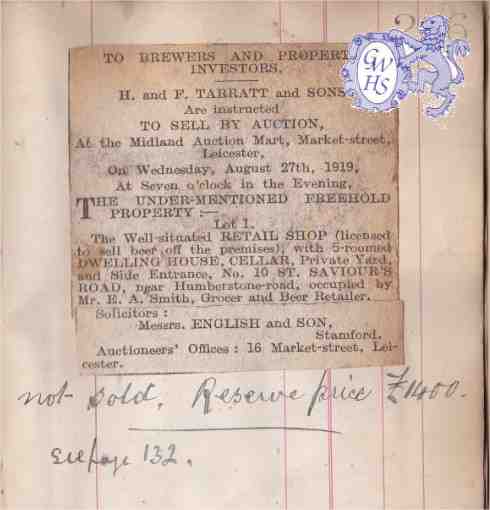 TO BREWERS AND PROPERTY
INVESTORS.
H. and F. TARRATT and SONS
Are instructed
TO SELL BY AUCTION,
At the Midland Auction Mart, Market-street,
Leicester,
On Wednesday, August 27th, 1919,
At Seven o'clock in the Evening,
THE UNDER-MENTIONED FREEHOLD
PROPERTY:—
Lot 1.
The Well-situated RETAIL SHOP (licensed
to sell beer off the premises), with 5-roomed
DWELLING HOUSE, CELLAR, Private Yard,
and Side Entrance, No. 10 ST. SAVIOUR'S
ROAD, near Humberstone-road, occupied by
Mr. E. A. Smith, Grocer and Beer Retailer.
Solicitors:
Messrs. ENGLISH and SON,
Stamford.
Auctioneers' Offices: 16 Market-street, Lei-
cester.
not sold. Reserve price £1400.
See page 132.
GW
HS